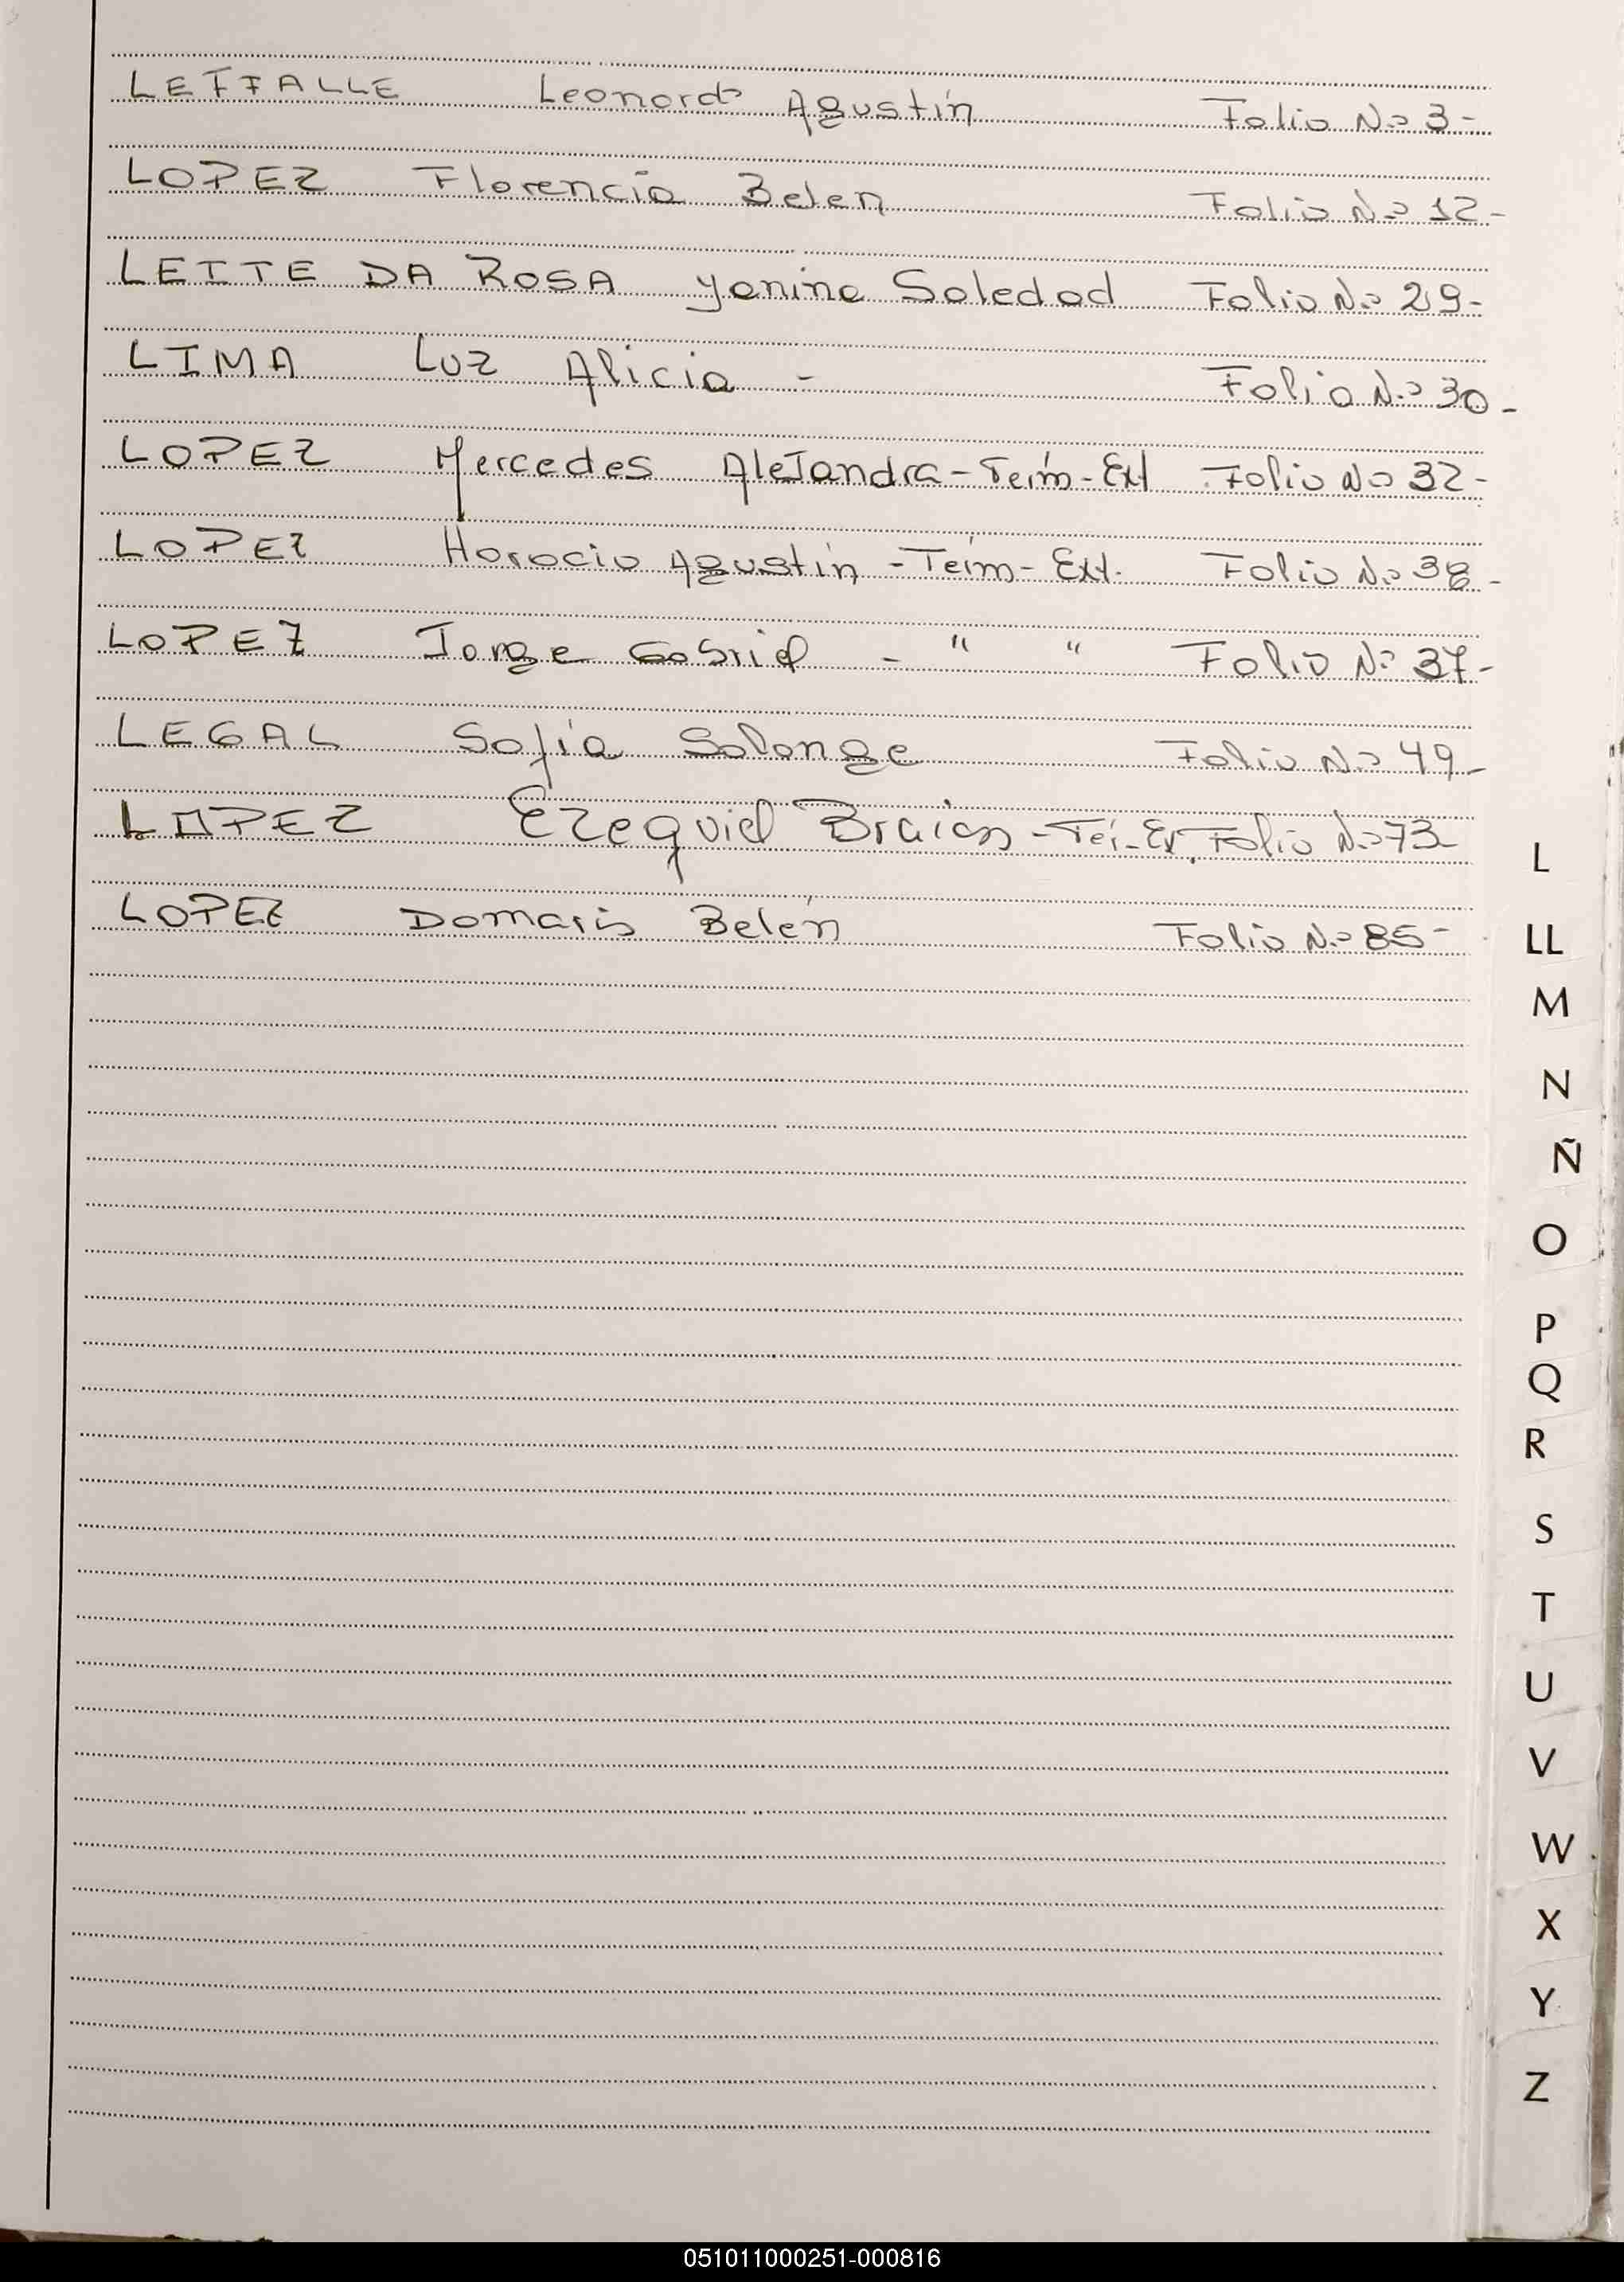 LEFFALLE Leonardo Agustín Folio No 3-
LOPEZ Florencia Belen Folio No 12-
LEITE DA ROSA Yanina Soledad Folio No 29-
LIMA Luz Alicia - Folio No 30-
LOPEZ Mercedes AleJandra - Teím - Ext Folio No 32-
LOPEZ Horacio Agustín - Teím - Ext. Folio No 38-
LOPEZ Jorge Gabriel - " " Folio No 37-
LEGAL Sofía Solange Folio No 49-
LOPEZ Ezequiel Braian - Folio No 73
LOPEZ Damaris Belén Folio No 85-
L
LL
M
N
Ñ
O
P
Q
R
S
T
U
V
W
X
Y
Z
051011000251-000816